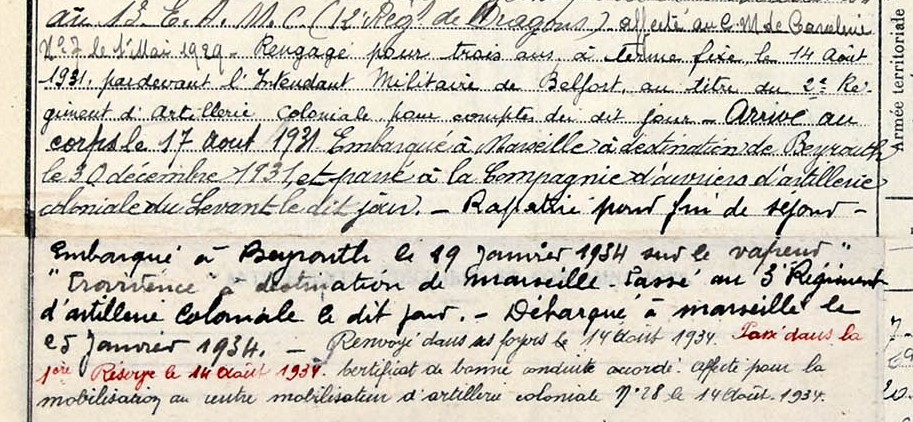 au 13e E. A. M. C. (12e Régt de Dragons). affecté au C. M. de Cavalerie
No 7 le 1er Mai 1929 - Rengagé pour trois ans, à terme fixe le 14 Août
1931, pardevant l'Intendant Militaire de Belfort, au titre du 2e Ré-
giment d'Artillerie coloniale pour compter du dit jour - Arrivé au
corps le 17 Aout 1931 Embarqué à Marseille à destination de Beyrouth
le 30 décembre 1931, et passé à la Compagnie d'ouvriers d'artillerie
coloniale du Levant le dit jour. - Rapatrié pour fin de séjour -
Embarqué à Beyrouth le 19 Janvier 1934 sur le vapeur "
" Providence " à destination de Marseille. Passé au 3e Régiment
d'artillerie Coloniale le dit jour. - Débarqué à marseille le
25 Janvier 1934. - Renvoyé dans ses foyers le 14 août 1934. Passé dans la
1ère Réserve le 14 Août 1934. Certificat de bonne conduite accordé. affecté pour la
mobilisation au centre mobilisateur d'artillerie coloniale No 28 le 14 Août 1934.
Armée territoriale